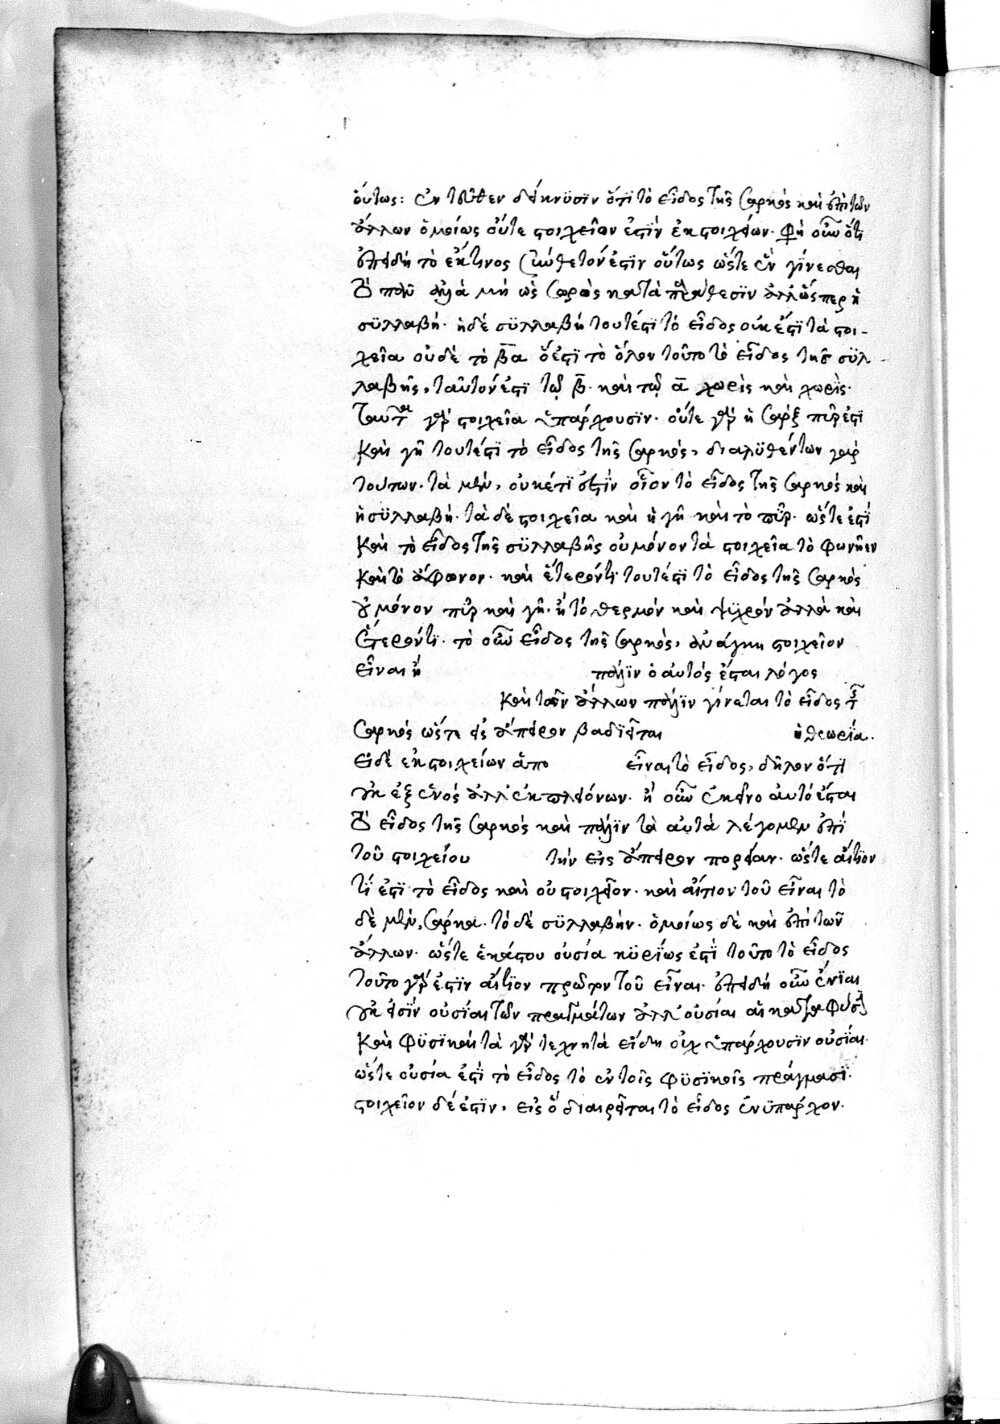 οὕτως: ἐντεῦθεν δείκνυσϊν ὅτϊ τὸ εἶδος τῆς σαρκὸς καὶ ἐπὶ τῶν
ἄλλων ὁμοίως οὔτε στοιχεῖον ἐστὶν ἐκ στοιχείων. φησὶ οὖν ὅτι
ἐπειδὴ τὸ ἔκ τινος σύνθετόν ἐστιν οὕτως ὥστε ἓν γίνεσθαι
τὸ πᾶν ἀλλὰ μὴ ὡς σωρὸς κατὰ παράθεσϊν ἀλλ' ὥσπερ ἡ
σϋλλαβή. ἡ δὲ σϋλλαβὴ τουτέστϊ τὸ εἶδος οὐκ ἔστϊ τὰ στοι-
χεῖα οὐδὲ τὸ βα ὅ ἐστϊ τὸ ὅλον τοῦτο τὸ εἶδος τῆς σϋλ-
λαβῆς, ταὐτόν ἐστϊ τῷ β. καὶ τῷ α χωρὶς καὶ χωρὶς.
ταῦτα γὰρ στοιχεῖα ὑπάρχουσϊν. οὔτε γὰρ ἡ σὰρξ πῦρ ἐστϊ
καὶ γῆ τουτέστϊ τὸ εἶδος τῆς σαρκός, διαλϋθέντων γὰρ
τούτων. τὰ μὲν, οὐκέτϊ ἐστὶν οἷον τὸ εἶδος τῆς σαρκὸς καὶ
ἡ σϋλλαβή. τὰ δὲ στοιχεῖα καὶ ἡ γῆ καὶ τὸ πῦρ. ὥστε ἐστὶ
καὶ τὸ εἶδος τῆς σϋλλαβῆς οὐ μόνον τὰ στοιχεῖα τὸ φωνῆεν
καὶ τὸ ἄφωνον. καὶ ἕτερόν τι τουτέστϊ τὸ εἶδος τῆς σαρκὸς
οὐ μόνον πῦρ καὶ γῆ. ἢ τὸ θερμὸν καὶ ψϋχρόν ἀλλὰ καὶ
ἕτερόν τϊ. τὸ οὖν εἶδος τῆς σαρκός, ἀνάγκη στοιχεῖον
εἶναι ἢ πάλϊν ὁ αὐτὸς ἔσται λόγος
καὶ τῶν ἄλλων πάλϊν γίνεται τὸ εἶδος τῆς
σαρκὸς ὥστε εἰς ἄπειρον βαδϊεῖται ἡ θεωρία.
εἰ δὲ ἐκ στοιχείων ἅπο εἶναι τὸ εἶδος, δῆλον ὅτϊ
οὐκ ἐξ ἑνὸς ἀλλ' ἐκ πλειόνων. ἢ οὖν ἐκεῖνο αὐτὸ ἔσται
τὸ εἶδος τῆς σαρκὸς καὶ πάλϊν τὰ αὐτὰ λέγομεν ἐπὶ
τοῦ στοιχείου τὴν εἰς ἄπειρον πορείαν. ὥστε αἴτϊον
τί ἐστϊ τὸ εἶδος καὶ οὐ στοιχεῖον. καὶ αἴτιον τοῦ εἶναι τὸ
δὲ μὲν, σάρκα. τὸ δὲ σϋλλαβήν. ὁμοίως δὲ καὶ ἐπὶ τῶν
ἄλλων. ὥστε ἑκάστου οὐσία κϋρίως ἐστὶ τοῦτο τὸ εἶδος
τοῦτο γάρ ἐστϊν αἴτϊον πρῶτον τοῦ εἶναι. ἐπειδὴ οὖν ἔνϊαι
οὐκ εἰσὶν οὐσίαι τῶν πραγμάτων ἀλλ' οὐσίαι αἱ κατὰ φύσιν
καὶ φϋσϊκαὶ τὰ γὰρ τεχνητὰ εἴδη οὐχ ὑπάρχουσϊν οὐσίαι.
ὥστε οὐσία ἐστὶ τὸ εἶδος τὸ ἐν τοῖς φϋσϊκοῖς πράγμασϊ.
στοιχεῖον δέ ἐστϊν, εἰς ὃ διαιρεῖται τὸ εἶδος ἐνϋπάρχον.